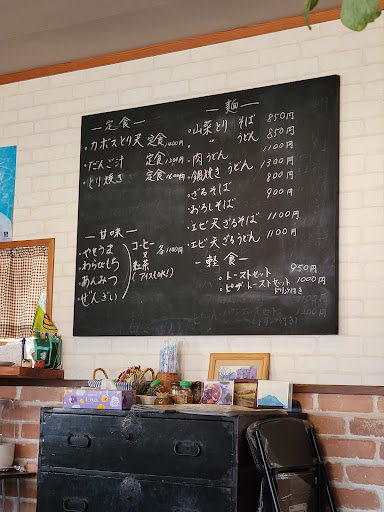 ― 定食 ―
・カボスとり天 定食 1400円
・だんご汁 定食 1300円
・とり焼き 定食 1600円
― 甘味 ―
・やせうま
・わらびもち
・あんみつ
・ぜんざい
コーヒー
又
紅茶
(アイスOK!)
各1100円
― 麺 ―
・山菜とりそば 850円
〃 うどん 850円
・肉うどん 1100円
・鍋焼きうどん 1300円
・ざるそば 800円
・おろしそば 900円
・エビ天ざるそば 1100円
・エビ天ざるうどん 1100円
― 軽食 ―
・トーストセット 950円
・ピザトーストセット 1000円
ドリンク付き